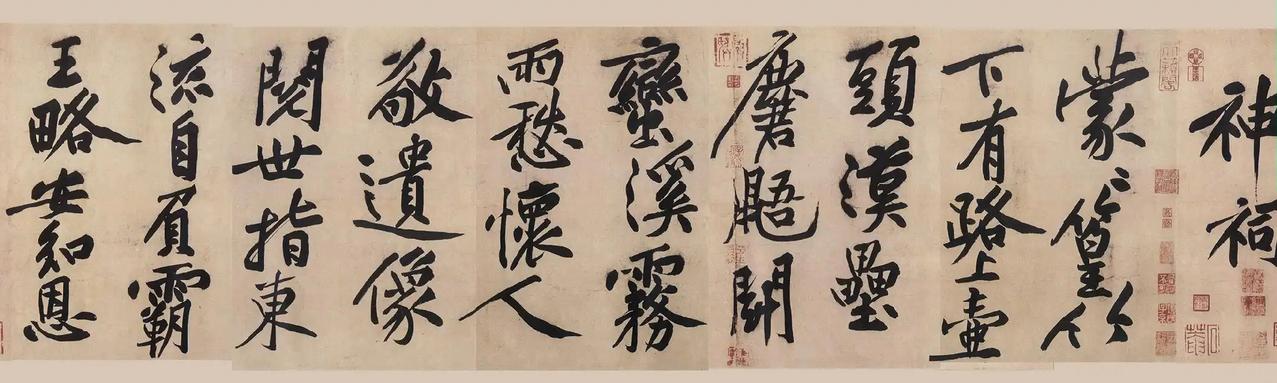 神祠
蒙〻篁竹
下有路上壺
頭漢壘
麏鼯鬭
蠻溪霧
雨愁懷人
敬遺像
閱世指東
流自負霸
王略安知恩